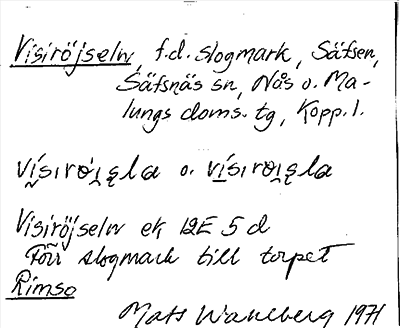 Visiröjseln, f.d. slogmark, Säfsen,
Säfsnäs sn, Nås o. Ma-
lungs doms. tg, Kopp. l.
o.
Visiröjseln ek 12E 5 d
Förr slogmark till torpet
Rimso
Mats Wahlberg 1971